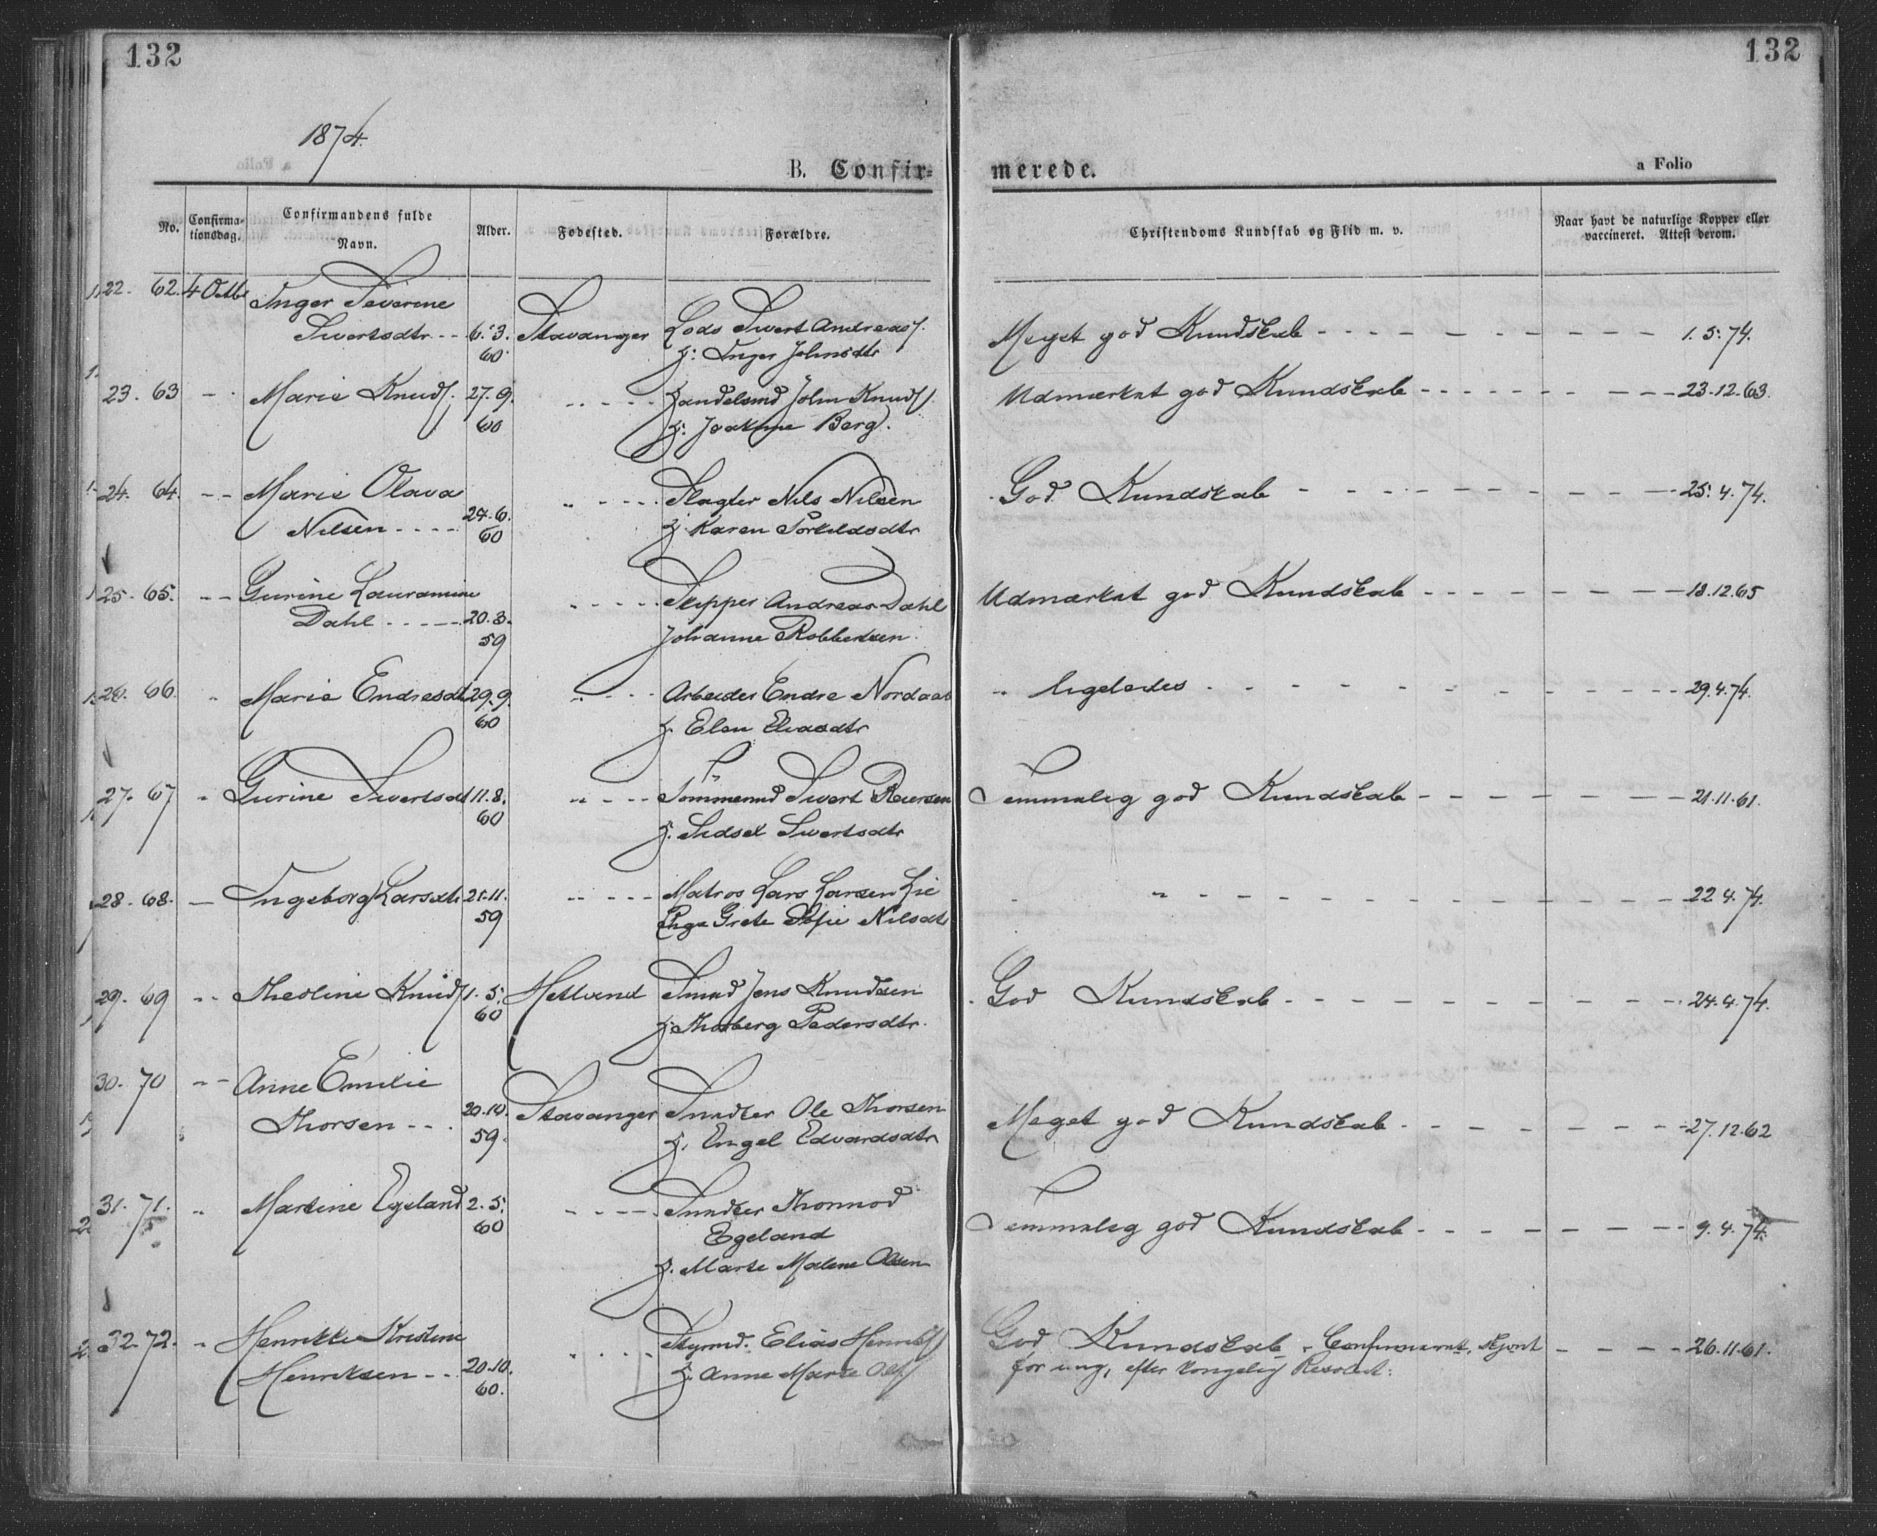 132
132
1874.
B. Confir-
merede.
a Folio
No.
Confirma-
tionsdag.
Confirmandens fulde
Navn.
Alder.
Fødested.
Forældre.
Christendoms Kundskab og Flid m. v.
Naar havt de naturlige Kopper eller
vaccineret. Attest derom.
22. 62. 4 Octbr Inger Severine
Sivertsdtr - - 6. 3. Stavanger Lods Sivert Andreas
60 Inger Johnsdtr
Meget god Kundskab - - - 1. 5. 74.
23. 63 - - Marie Knuds. 27. 9. - - - Handelsmd John Knuds
60 Berg.
Udmærket god Kundskab - - - 23.12.63.
24. 64. - - Marie Olava - - - Slagter Nils Nilsen
Nilsen - - - 24. 6. Karen Torkildsdtr
60
God Kundskab - - - 25. 4. 74.
25. 65. - - Gurine Lauramine - - - Skipper Andreas Dahl
Dahl - - - 20. 3. Johanne
59
Udmærket god Kundskab - - - 18.12.65
26. 66. " Marie Endresdtr 29. 9. - - - Arbeider Endre
60 Elen
" ligeledes - - - 29. 4. 74.
27. 67 " Gurine Sivertsdt 11. 8. - - - Tømmermd Sivert
60 Sidsel Sivertsdtr
Temmelig god Kundskab - - - 21.11.61.
28. 68. - Ingeborg Larsdtr 21.11. - - - Matros Lars Larsen Lie
59 Grete Sofie Nilsdt
" - - - 22. 4. 74.
29. 69 - - Theoline Knuds 1. 5. Hetland Smed Jens Knudsen
60 Thorberg Pedersdtr.
God Kundskab - - - 24. 4. 74.
30. 70 - - Anne Emilie
Thorsen - - 20.10. Stavanger Snedker Ole Thorsen
59. Engel Edvardsdtr
Meget god Kundskab - - - 27.12.62
31. 71. " Martine Egeland 2. 5. - - - Snedker Thormod
60 Egeland
Marte Malene Olsen
Temmelig god Kundskab - - - 9. 4. 74.
32. 72. " Henrikke Kristine Elias Henriks
Henriksen - - 20.10. Anne Marte Ols
60.
God Kundskab. Confirmeret, skjønt - - - 26.11.61.
for ung, efter kongelig Resolut: